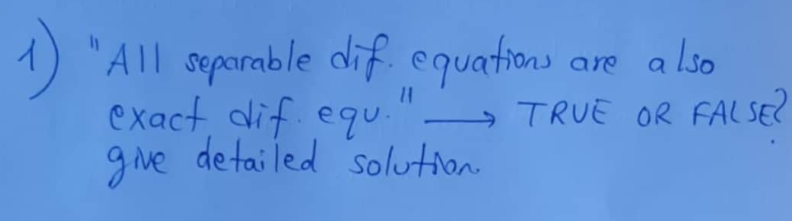 1) "All separable dif. equations are also
exact dif. equ." → TRUE OR FALSE?
give detailed solution.